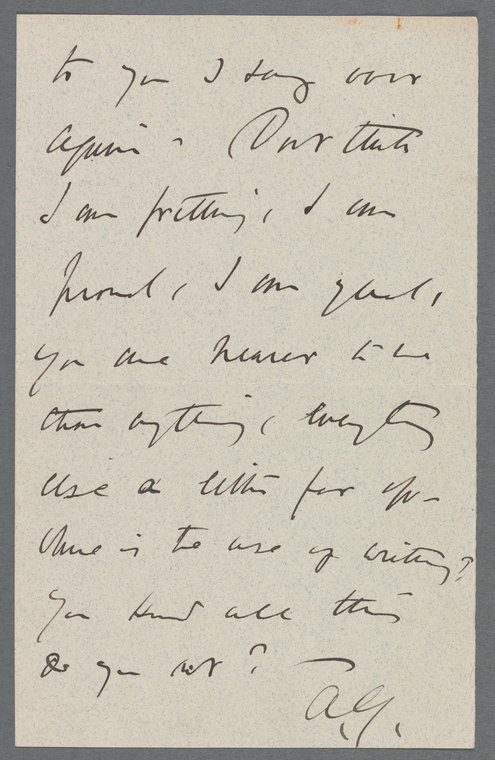 to you I say over
again - Don't think
I am fretting, I am
proud, I am glad,
you are nearer to me
than anything, everything
else a little far off -
What is the use of writing?
You know all this
do you not?
A.G.